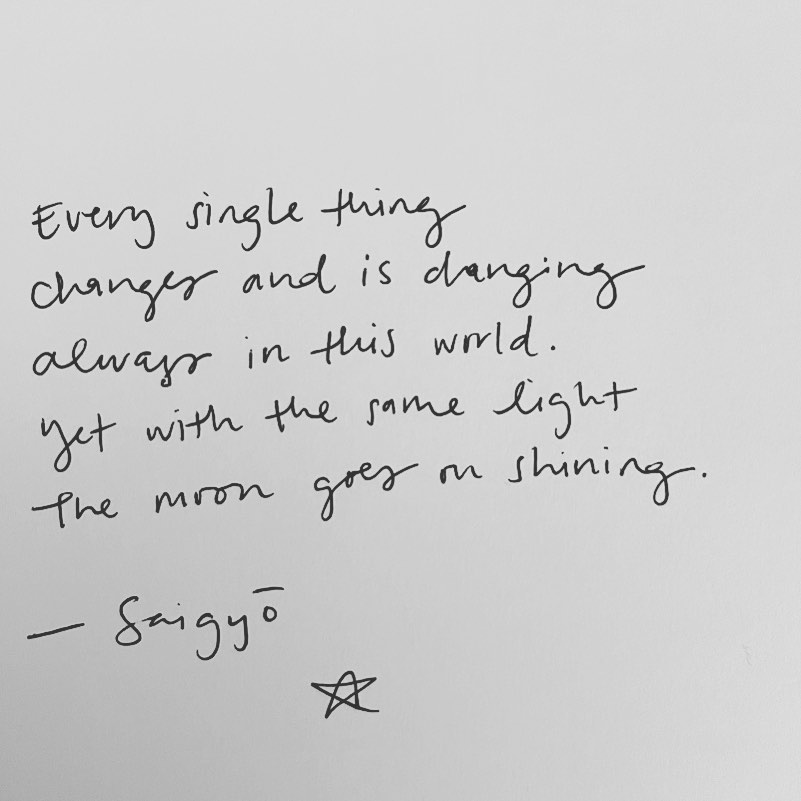 Every single thing
changes and is changing
always in this world.
Yet with the same light
the moon goes on shining.
— Saigyō